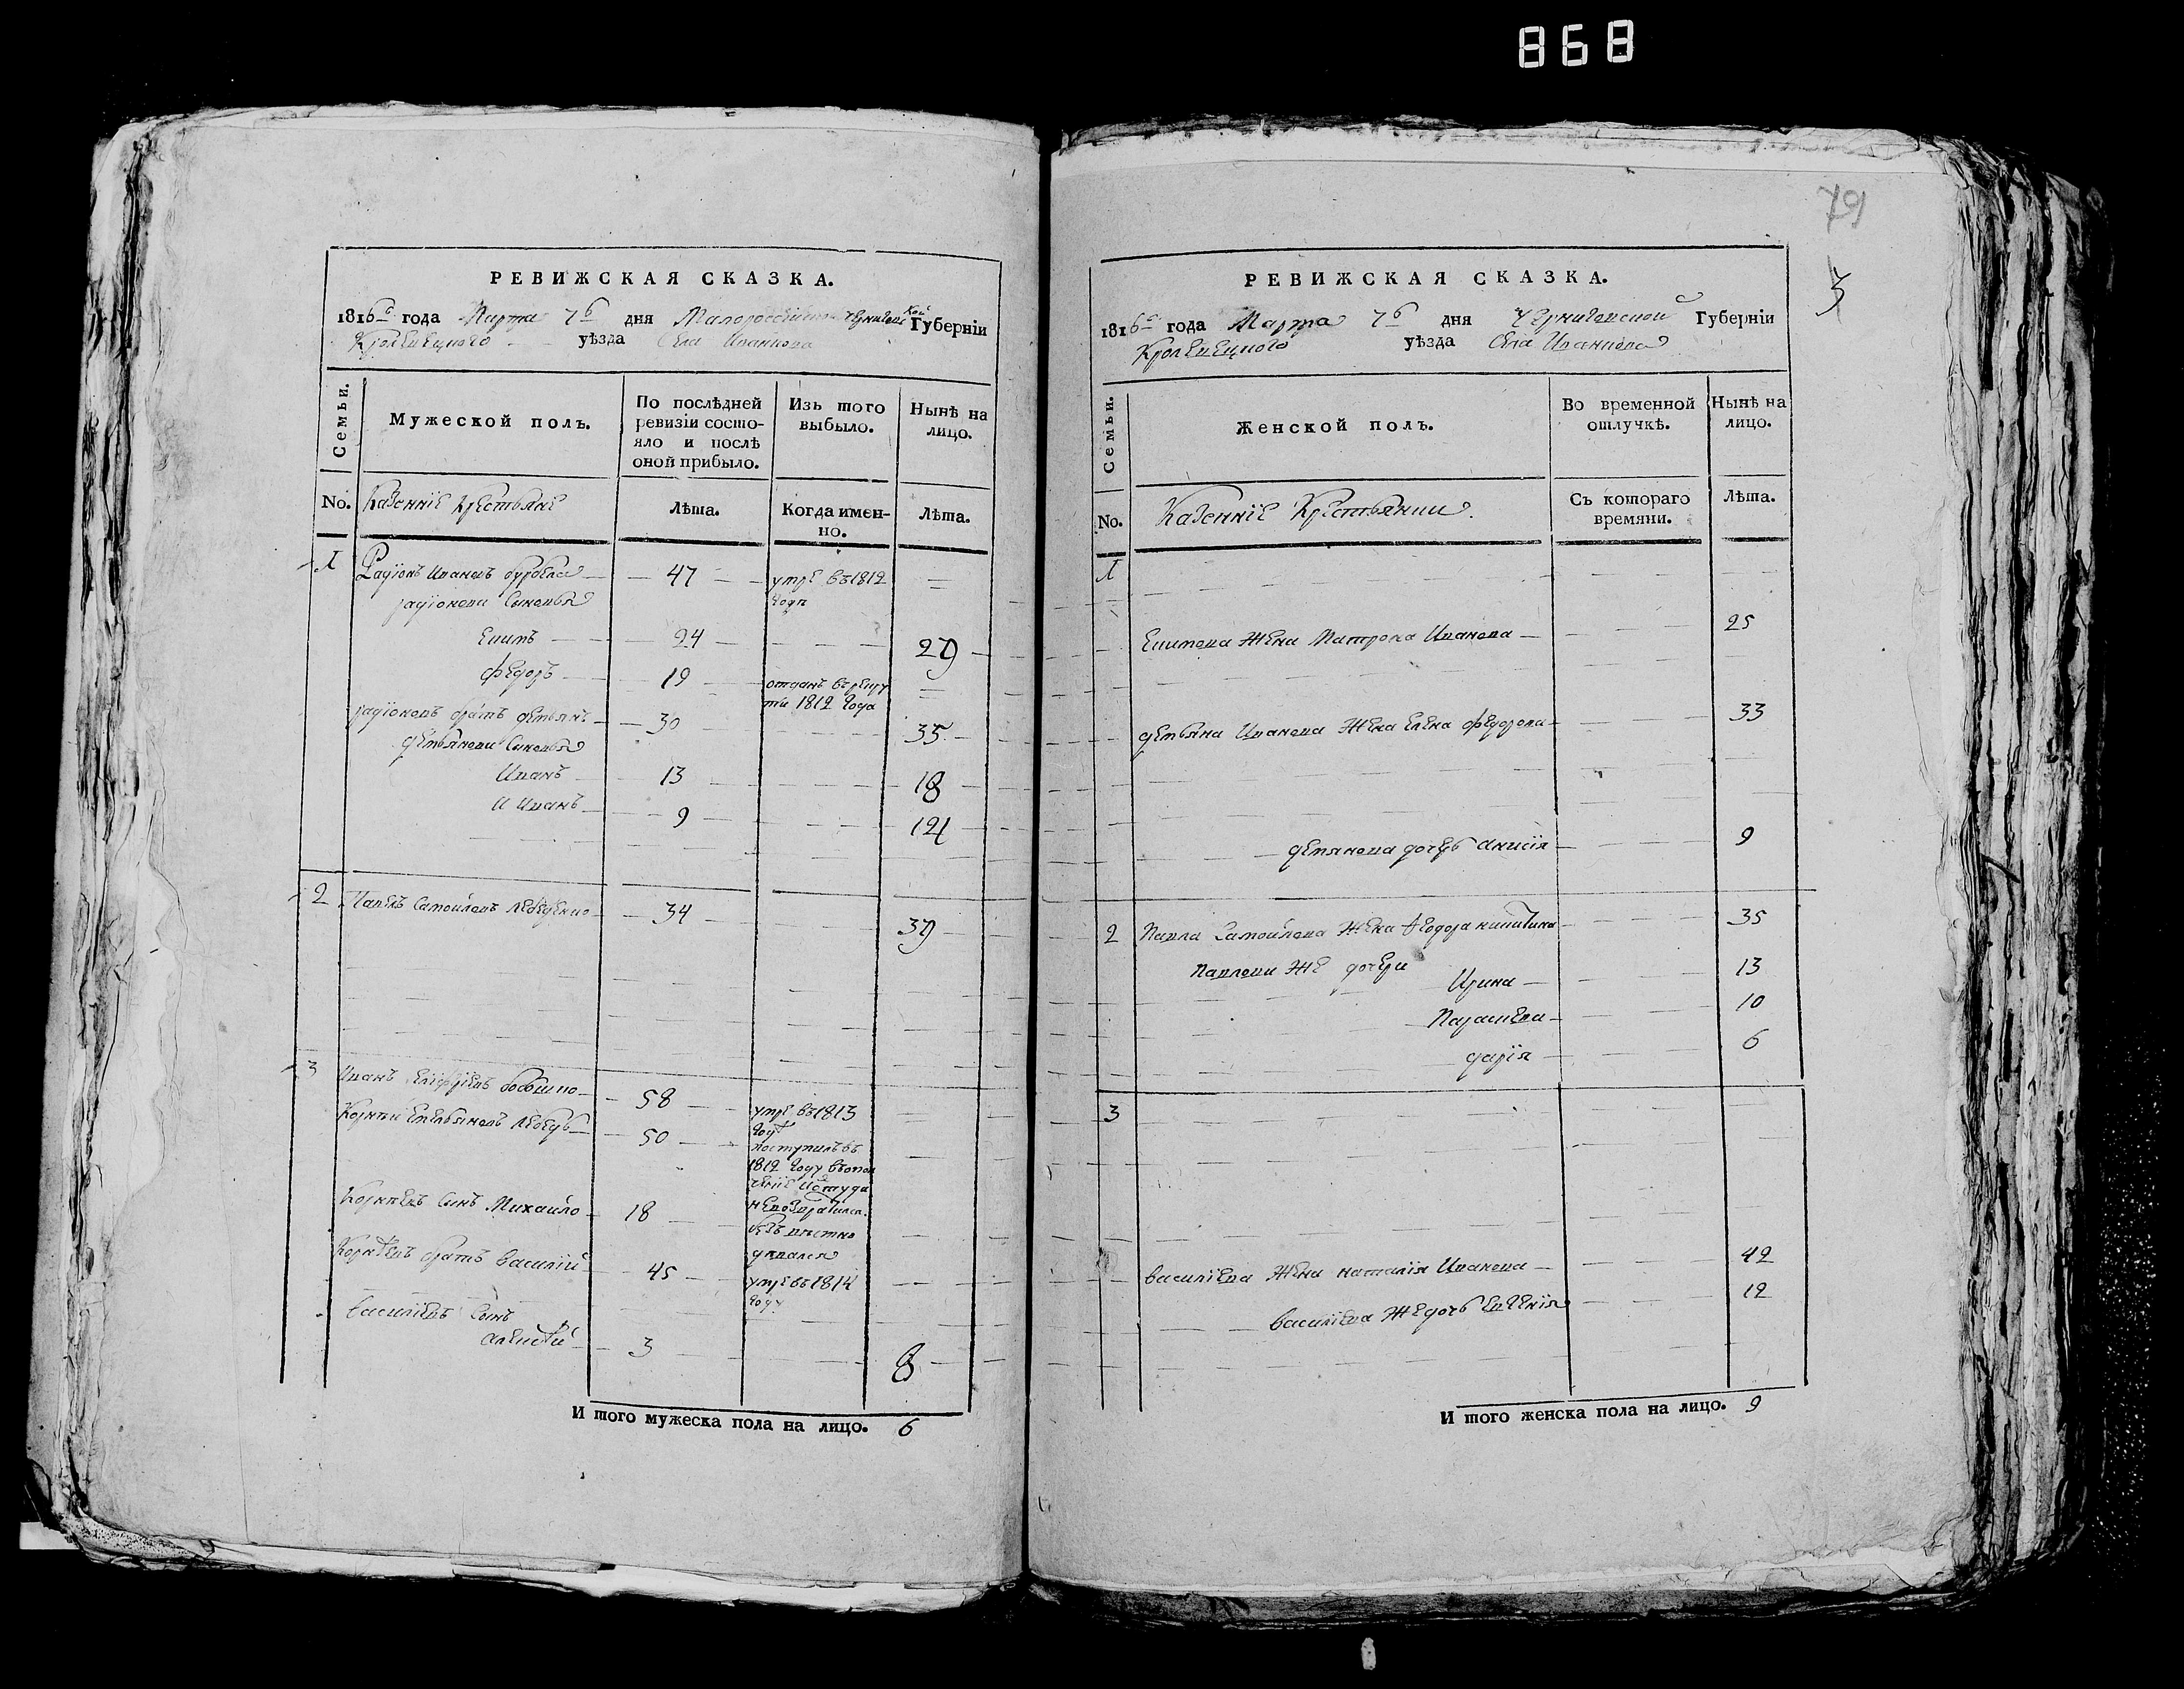 868
РЕВИЖСКАЯ СКАЗКА.
1816го года Марта 7го дня Малороссийской Черниговской Губерніи
Кролевецкого уѣзда Села Иванкова
Семьи.
Мужеской полъ.
По послѣдней ревизіи состояло и послѣ оной прибыло.
Изъ того выбыло.
Нынѣ на лицо.
No. Казенніе Крестьяне
Лѣта.
Когда именно.
Лѣта.
1 Радіонъ Ивановъ 47 умре въ 1812 году
радіонови Сыновья
24 29
Федоръ 19 отданъ в рекруты 1812 года
радіоновъ братъ демьянъ 30 35
демьянови Сыновья
Иванъ 13 18
И Иванъ 9 14
2 Павелъ Самойловъ Лебеденко 34 39
3 Иванъ 58 умре въ 1813 году
Корнѣй Емельяновъ Лебедь 50 поступилъ въ 1812 году в ополченіе и оттуда не возвратился
Корнѣевъ Сынъ Михайло 18 безъ вѣстно дѣвался
Корнѣевъ братъ Василий 45 умре въ 1814 году
Василіевъ Сынъ
Алексѣй 3 8
И того мужеска пола на лицо. 6
3
РЕВИЖСКАЯ СКАЗКА.
1816го года Марта 7го дня Черниговской Губерніи
Кролевецкого уѣзда Села Иванкова
Семьи.
Женской полъ.
Во временной отлучкѣ.
Нынѣ на лицо.
No. Казенніе Крестьянки
Съ котораго времяни.
Лѣта.
1
жена Матрона Иванова 25
демьяна Иванова жена Елена Федорова 33
демянова дочерь Анисія 9
2 Павла Самойлова жена Феодора Никитина 35
Павлови же дочери
Ирина 13
Параскева 10
дарія 6
3
Василіева жена Наталія Иванова 42
Василіева же дочь Евгенія 12
И того женска пола на лицо. 9